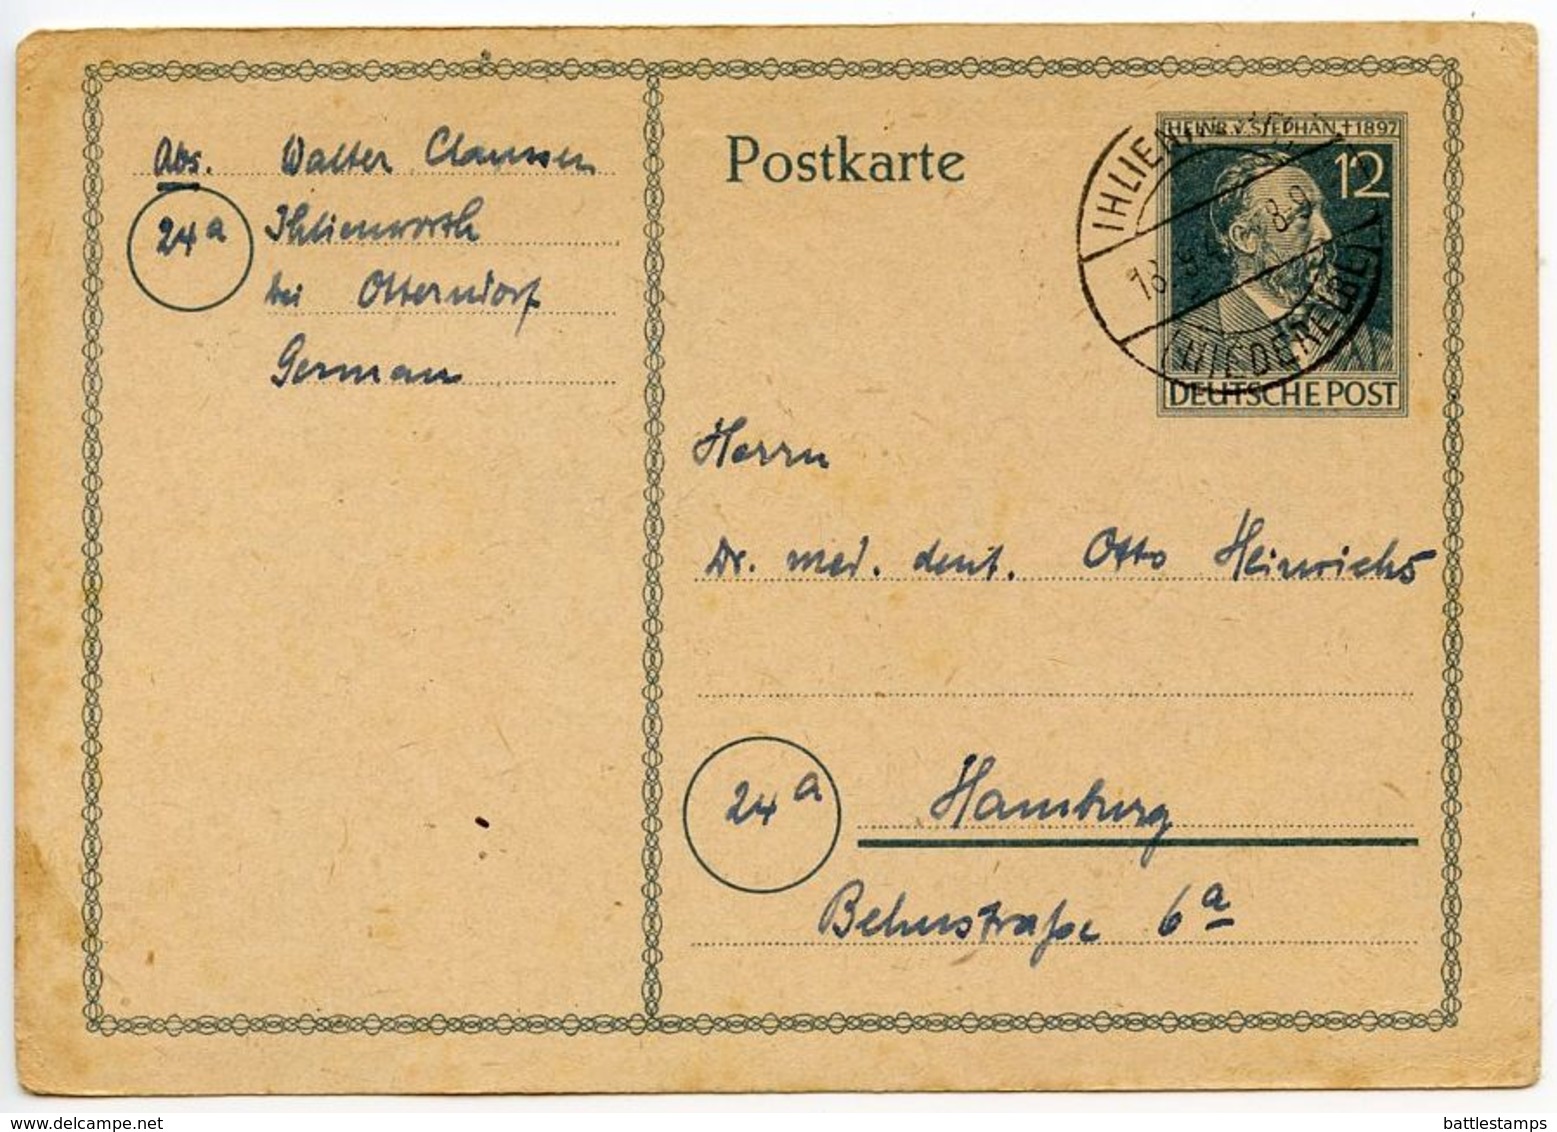 Abs. Walter Claussen
24a Ihlienworth
bei Otterndorf
German
Postkarte
HEINR. V. STEPHAN † 1897
12
DEUTSCHE POST
8-9
(NIEDERELBE)
Herrn
Dr. med. dent. Otto Heinrichs
24a Hamburg
Behnstraße 6a
delcampe.net
battlestamps